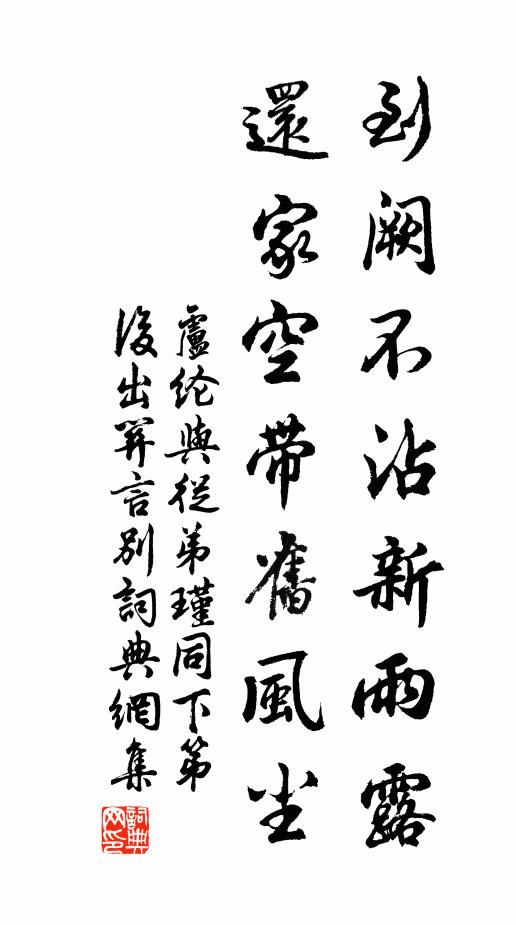 到闕不沾新雨露
還家空帶舊風尘
盧纶與從弟瑾同下第
後出関言別詞典網集
詞典
网印